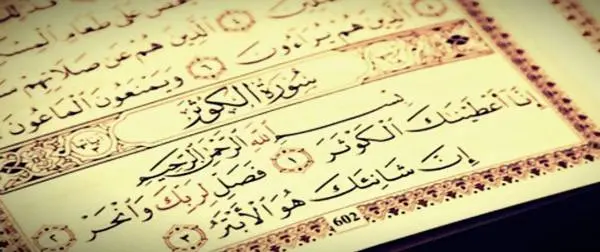 عَلَىٰ طَعَامِ
ٱلَّذِينَ هُمْ عَن صَلَاتِهِمْ
ٱلَّذِينَ هُمْ يُرَآءُونَ ٦ وَيَمْنَعُونَ ٱلْمَاعُونَ
سُورَةُ الكَوْثَرِ
بِسْمِ ٱللَّهِ ٱلرَّحْمَٰنِ ٱلرَّحِيمِ
إِنَّآ أَعْطَيْنَٰكَ ٱلْكَوْثَرَ ١ فَصَلِّ لِرَبِّكَ وَٱنْحَرْ ٢
إِنَّ شَانِئَكَ هُوَ ٱلْأَبْتَرُ ٣
602